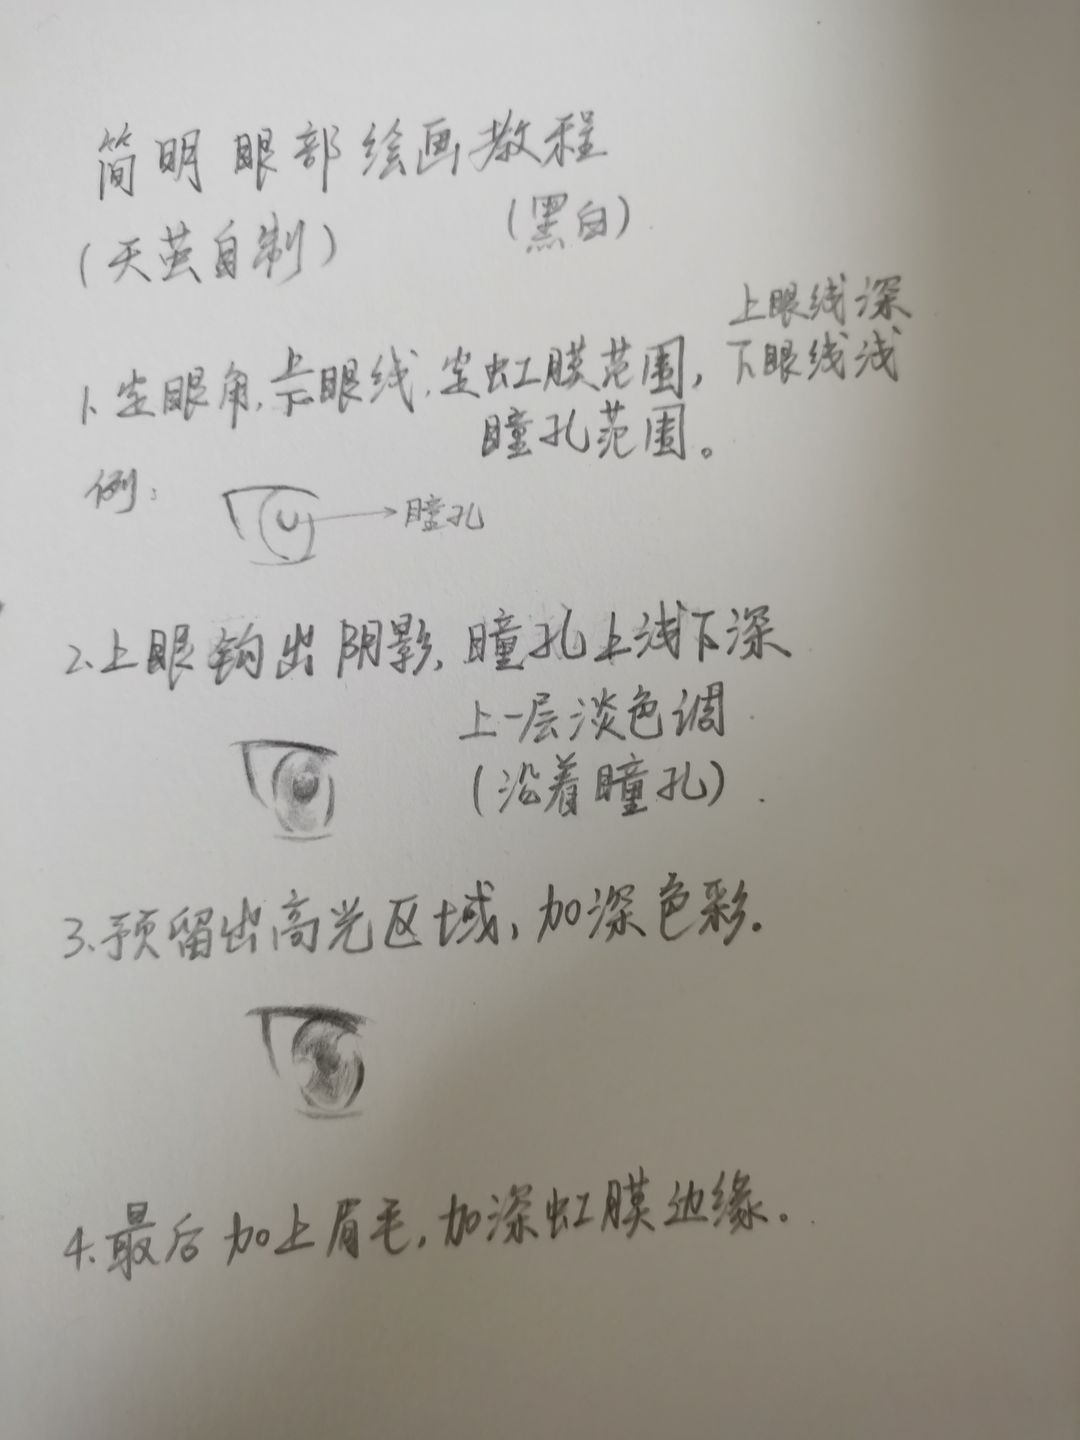 简明眼部绘画教程
(黑白)
(天茧自制)
上眼线深
1.定眼角,上下眼线,定虹膜范围,下眼线浅
瞳孔范围。
例:
瞳孔
2.上眼钩出阴影,瞳孔上浅下深
上一层淡色调
(沿着瞳孔)
3.预留出高光区域,加深色彩.
4.最后加上眉毛,加深虹膜边缘。